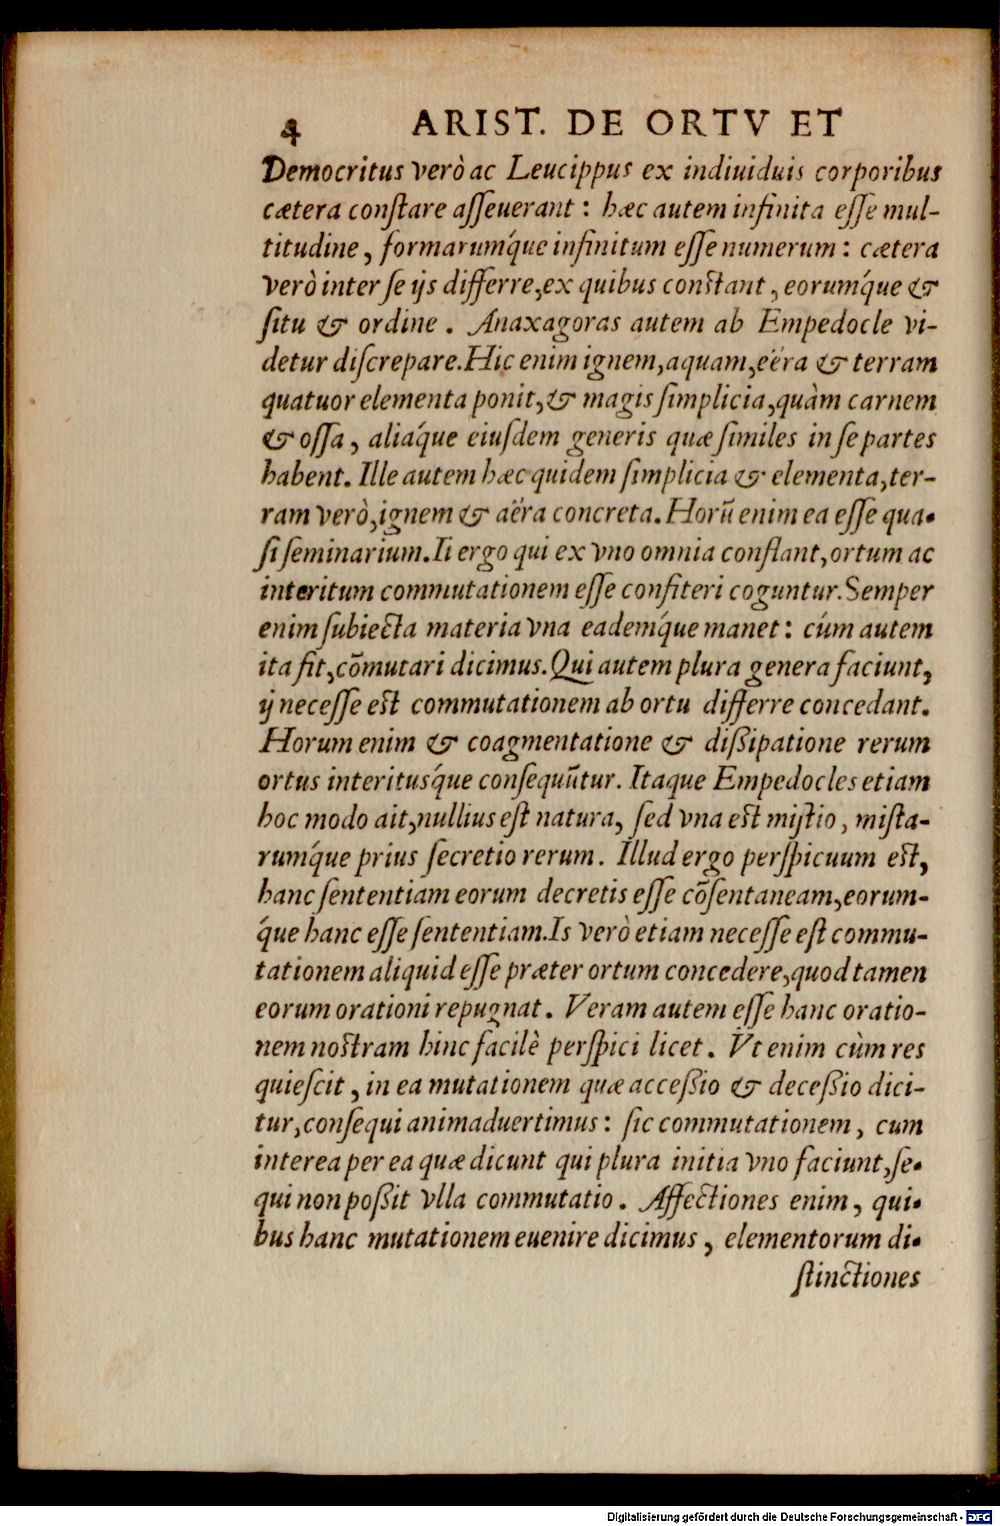 4 ARIST. DE ORTV ET
Democritus verò ac Leucippus ex indiuiduis corporibus
cætera conſtare aſſeuerant : hæc autem infinita eſſe mul-
titudine , formarumq́ue infinitum eſſe numerum : cætera
verò inter ſe ijs differre,ex quibus conſtant , eorumq́ue &
ſitu & ordine . Anaxagoras autem ab Empedocle vi-
detur diſcrepare.Hic enim ignem,aquam,eëra & terram
quatuor elementa ponit,& magis ſimplicia,quàm carnem
& oſſa , aliaq́ue eiuſdem generis quæ ſimiles in ſe partes
habent. Ille autem hæc quidem ſimplicia & elementa,ter-
ram verò,ignem & aëra concreta. Horũ enim ea eſſe qua-
ſi ſeminarium. Ii ergo qui ex vno omnia conflant,ortum ac
interitum commutationem eſſe confiteri coguntur.Semper
enim ſubiecta materia vna eademq́ue manet : cúm autem
ita fit,cōmutari dicimus.Qui autem plura genera faciunt,
ij neceſſe eſt commutationem ab ortu differre concedant.
Horum enim & coagmentatione & dißipatione rerum
ortus interitusq́ue conſequũtur. Itaque Empedocles etiam
hoc modo ait,nullius eſt natura, ſed vna eſt miſtio , miſta-
rumq́ue prius ſecretio rerum . Illud ergo perſpicuum eſt,
hanc ſententiam eorum decretis eſſe cōſentaneam,eorum-
q́ue hanc eſſe ſententiam.Is verò etiam neceſſe eſt commu-
tationem aliquid eſſe præter ortum concedere,quod tamen
eorum orationi repugnat . Veram autem eſſe hanc oratio-
nem noſtram hinc facilè perſpici licet . Vt enim cùm res
quieſcit , in ea mutationem quæ acceßio & deceßio dici-
tur,conſequi animaduertimus : ſic commutationem , cum
interea per ea quæ dicunt qui plura initia vno faciunt,ſe-
qui non poßit vlla commutatio . Affectiones enim , qui-
bus hanc mutationem euenire dicimus , elementorum di-
ſtinctiones
Digitalisierung gefördert durch die Deutsche Forschungsgemeinschaft - DFG